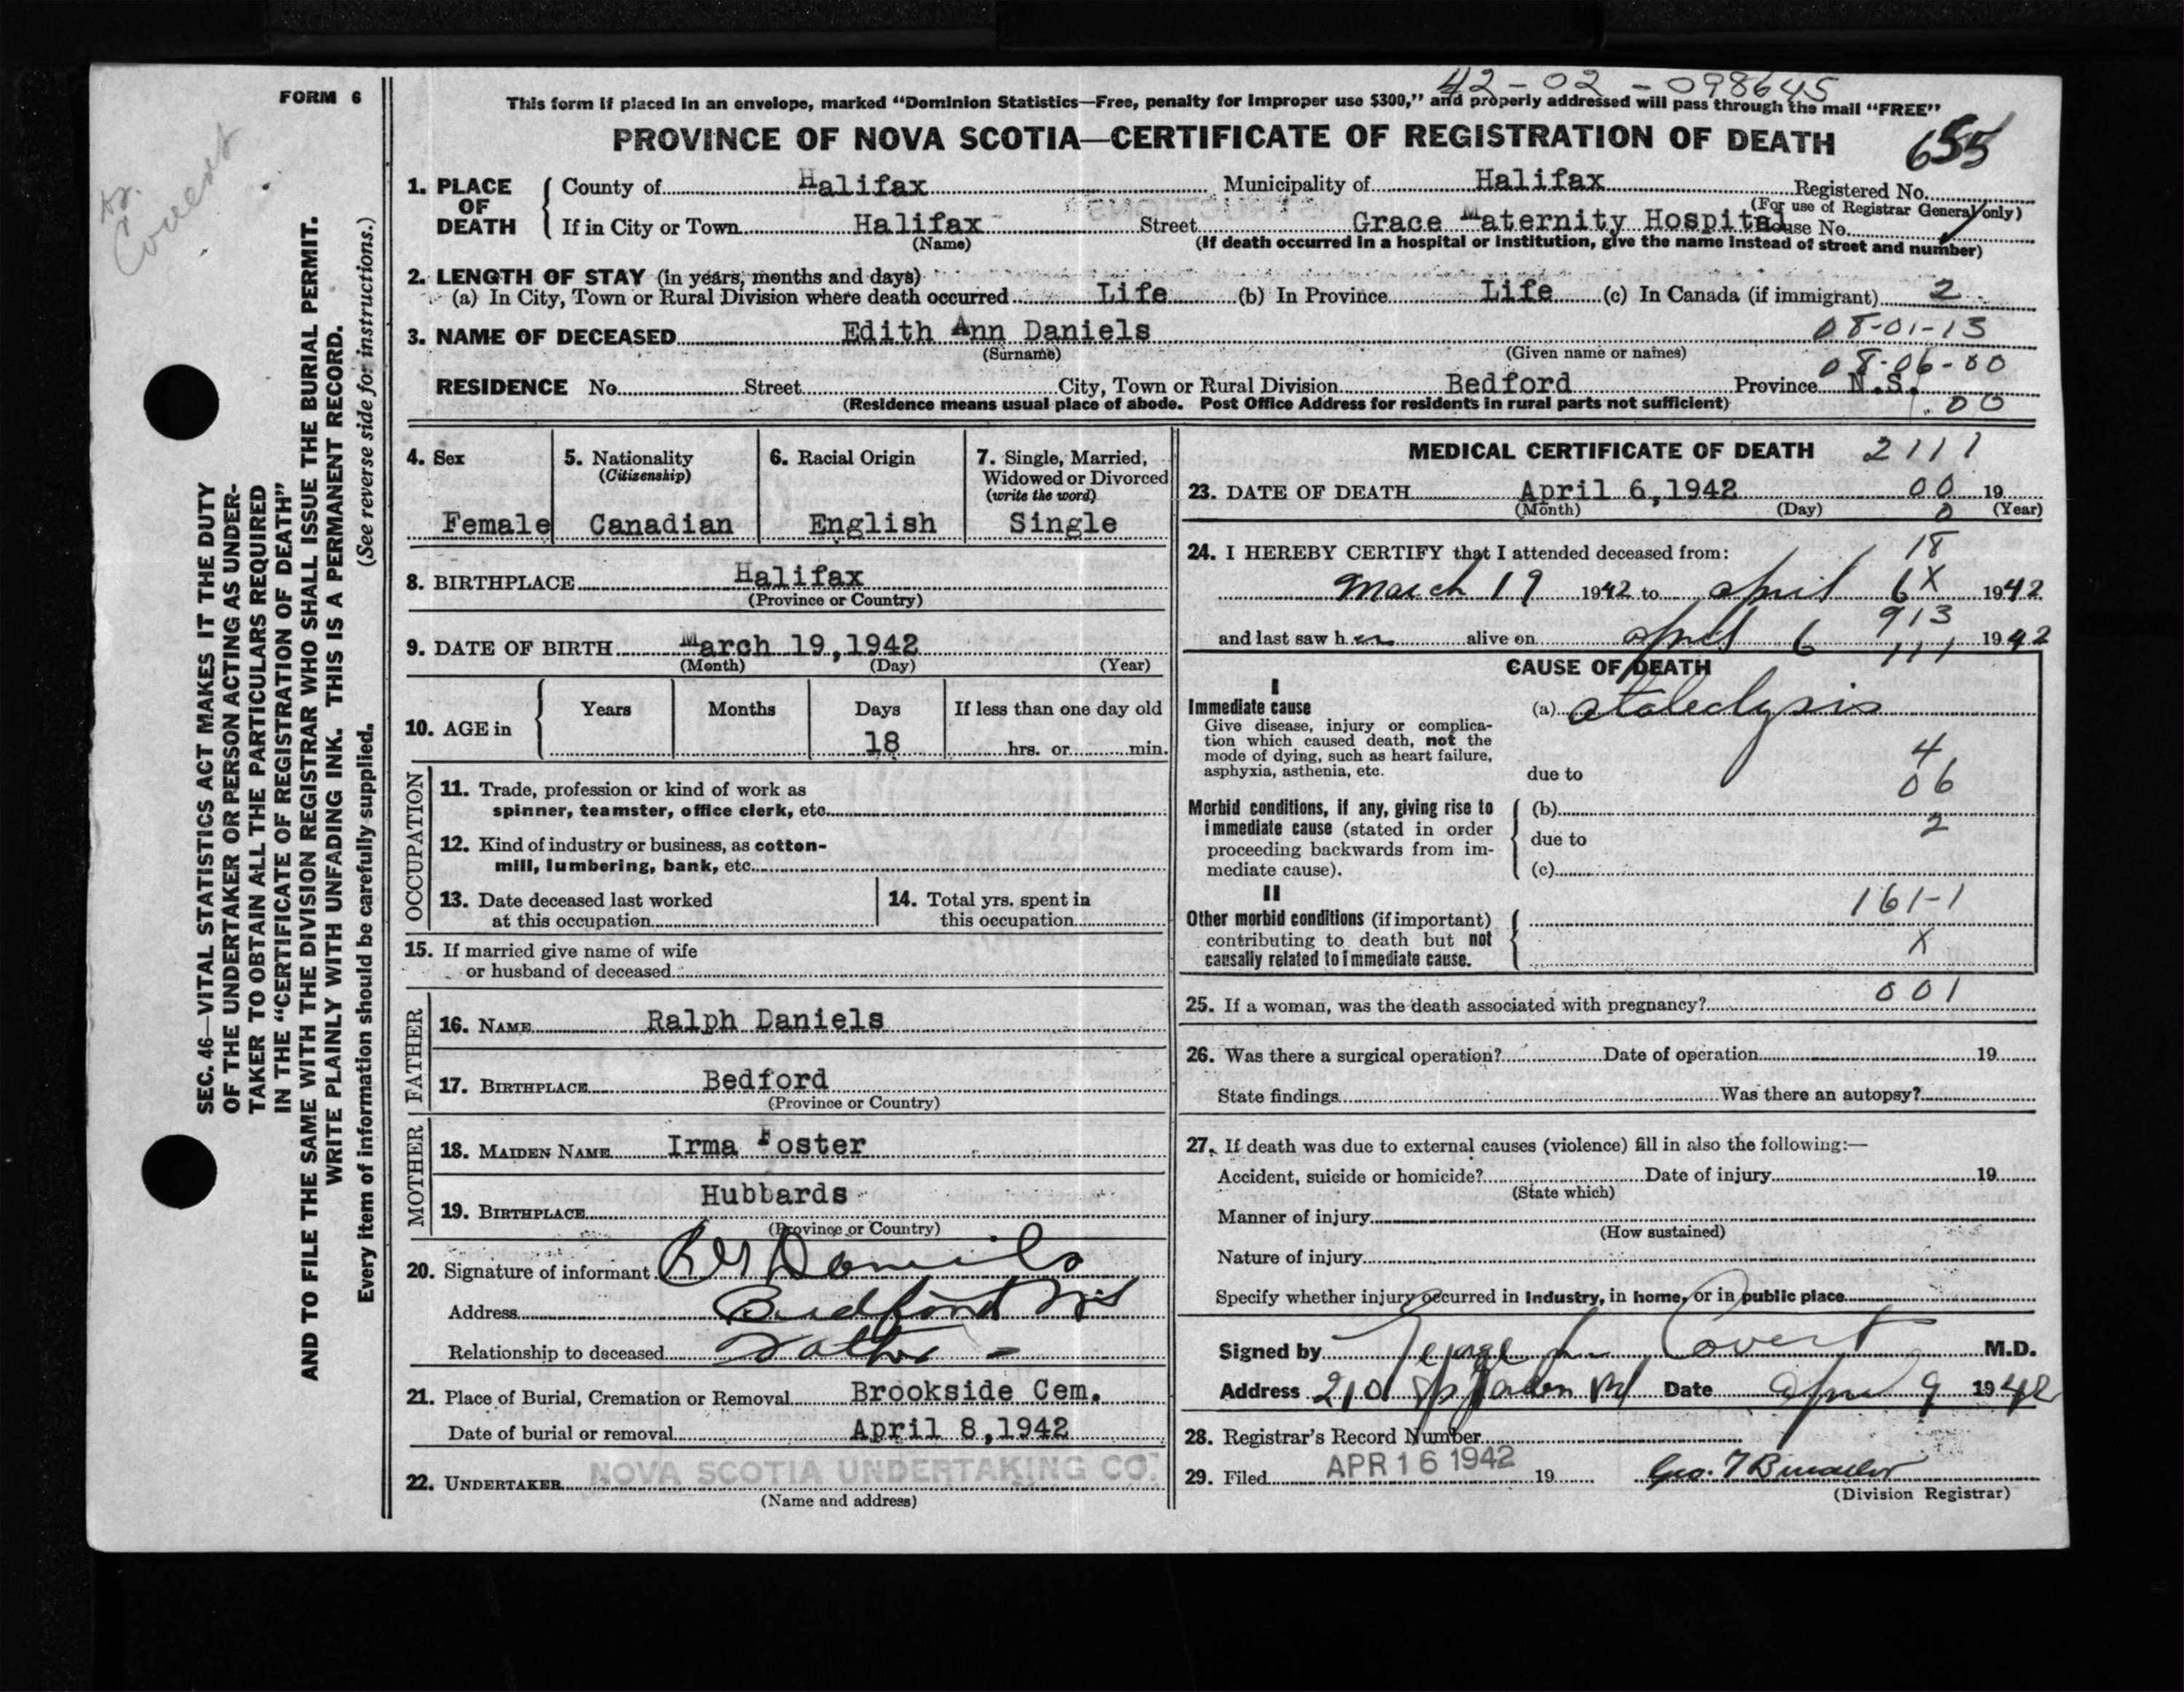 42-02-098645
FORM 6
This form if placed in an envelope, marked "Dominion Statistics—Free, penalty for improper use $300," and properly addressed will pass through the mail "FREE"
PROVINCE OF NOVA SCOTIA—CERTIFICATE OF REGISTRATION OF DEATH
655
Dr. Covert
SEC. 46—VITAL STATISTICS ACT MAKES IT THE DUTY
OF THE UNDERTAKER OR PERSON ACTING AS UNDER-
TAKER TO OBTAIN ALL THE PARTICULARS REQUIRED
IN THE "CERTIFICATE OF REGISTRATION OF DEATH"
AND TO FILE THE SAME WITH THE DIVISION REGISTRAR WHO SHALL ISSUE THE BURIAL PERMIT.
WRITE PLAINLY WITH UNFADING INK. THIS IS A PERMANENT RECORD.
Every item of information should be carefully supplied. (See reverse side for instructions.)
1. PLACE OF DEATH { County of Halifax Municipality of Halifax Registered No.
(For use of Registrar General only)
If in City or Town Halifax Street Grace Maternity Hospital House No.
(Name) (If death occurred in a hospital or institution, give the name instead of street and number)
2. LENGTH OF STAY (in years, months and days)
(a) In City, Town or Rural Division where death occurred Life (b) In Province Life (c) In Canada (if immigrant) 2
3. NAME OF DECEASED Edith Ann Daniels 08-01-13
(Surname) (Given name or names)
08-06-00
RESIDENCE No. Street City, Town or Rural Division Bedford Province N.S.
(Residence means usual place of abode. Post Office Address for residents in rural parts not sufficient) 00
4. Sex
Female
5. Nationality
(Citizenship)
Canadian
6. Racial Origin
English
7. Single, Married,
Widowed or Divorced
(write the word)
Single
8. BIRTHPLACE Halifax
(Province or Country)
9. DATE OF BIRTH March 19,1942
(Month) (Day) (Year)
10. AGE in { Years Months Days If less than one day old
18 hrs. or min.
OCCUPATION
11. Trade, profession or kind of work as
spinner, teamster, office clerk, etc.
12. Kind of industry or business, as cotton-
mill, lumbering, bank, etc.
13. Date deceased last worked
at this occupation
14. Total yrs. spent in
this occupation
15. If married give name of wife
or husband of deceased
FATHER
16. NAME Ralph Daniels
17. BIRTHPLACE Bedford
(Province or Country)
MOTHER
18. MAIDEN NAME Irma Foster
19. BIRTHPLACE Hubbards
(Province or Country)
20. Signature of informant Daniels
Address Bedford N.S
Relationship to deceased Father -
21. Place of Burial, Cremation or Removal Brookside Cem.
Date of burial or removal April 8,1942
22. UNDERTAKER NOVA SCOTIA UNDERTAKING CO.
(Name and address)
MEDICAL CERTIFICATE OF DEATH 2111
23. DATE OF DEATH April 6,1942 00 19
(Month) (Day) 0 (Year)
24. I HEREBY CERTIFY that I attended deceased from: 18
March 19 1942 to April 6 X 1942
913
and last saw her alive on April 6 1942
111
CAUSE OF DEATH
I
Immediate cause
Give disease, injury or complica-
tion which caused death, not the
mode of dying, such as heart failure,
asphyxia, asthenia, etc.
(a)
4
due to 06
Morbid conditions, if any, giving rise to
immediate cause (stated in order
proceeding backwards from im-
mediate cause).
(b)
2
due to
(c)
II
161-1
Other morbid conditions (if important)
contributing to death but not
causally related to immediate cause.
X
25. If a woman, was the death associated with pregnancy? 001
26. Was there a surgical operation? Date of operation 19
State findings Was there an autopsy?
27. If death was due to external causes (violence) fill in also the following:—
Accident, suicide or homicide? Date of injury 19
(State which)
Manner of injury
(How sustained)
Nature of injury
Specify whether injury occurred in industry, in home, or in public place
Signed by George Covert M.D.
Address 210 Sp Garden Rd Date April 9 1942
28. Registrar's Record Number
29. Filed APR 16 1942 19
(Division Registrar)